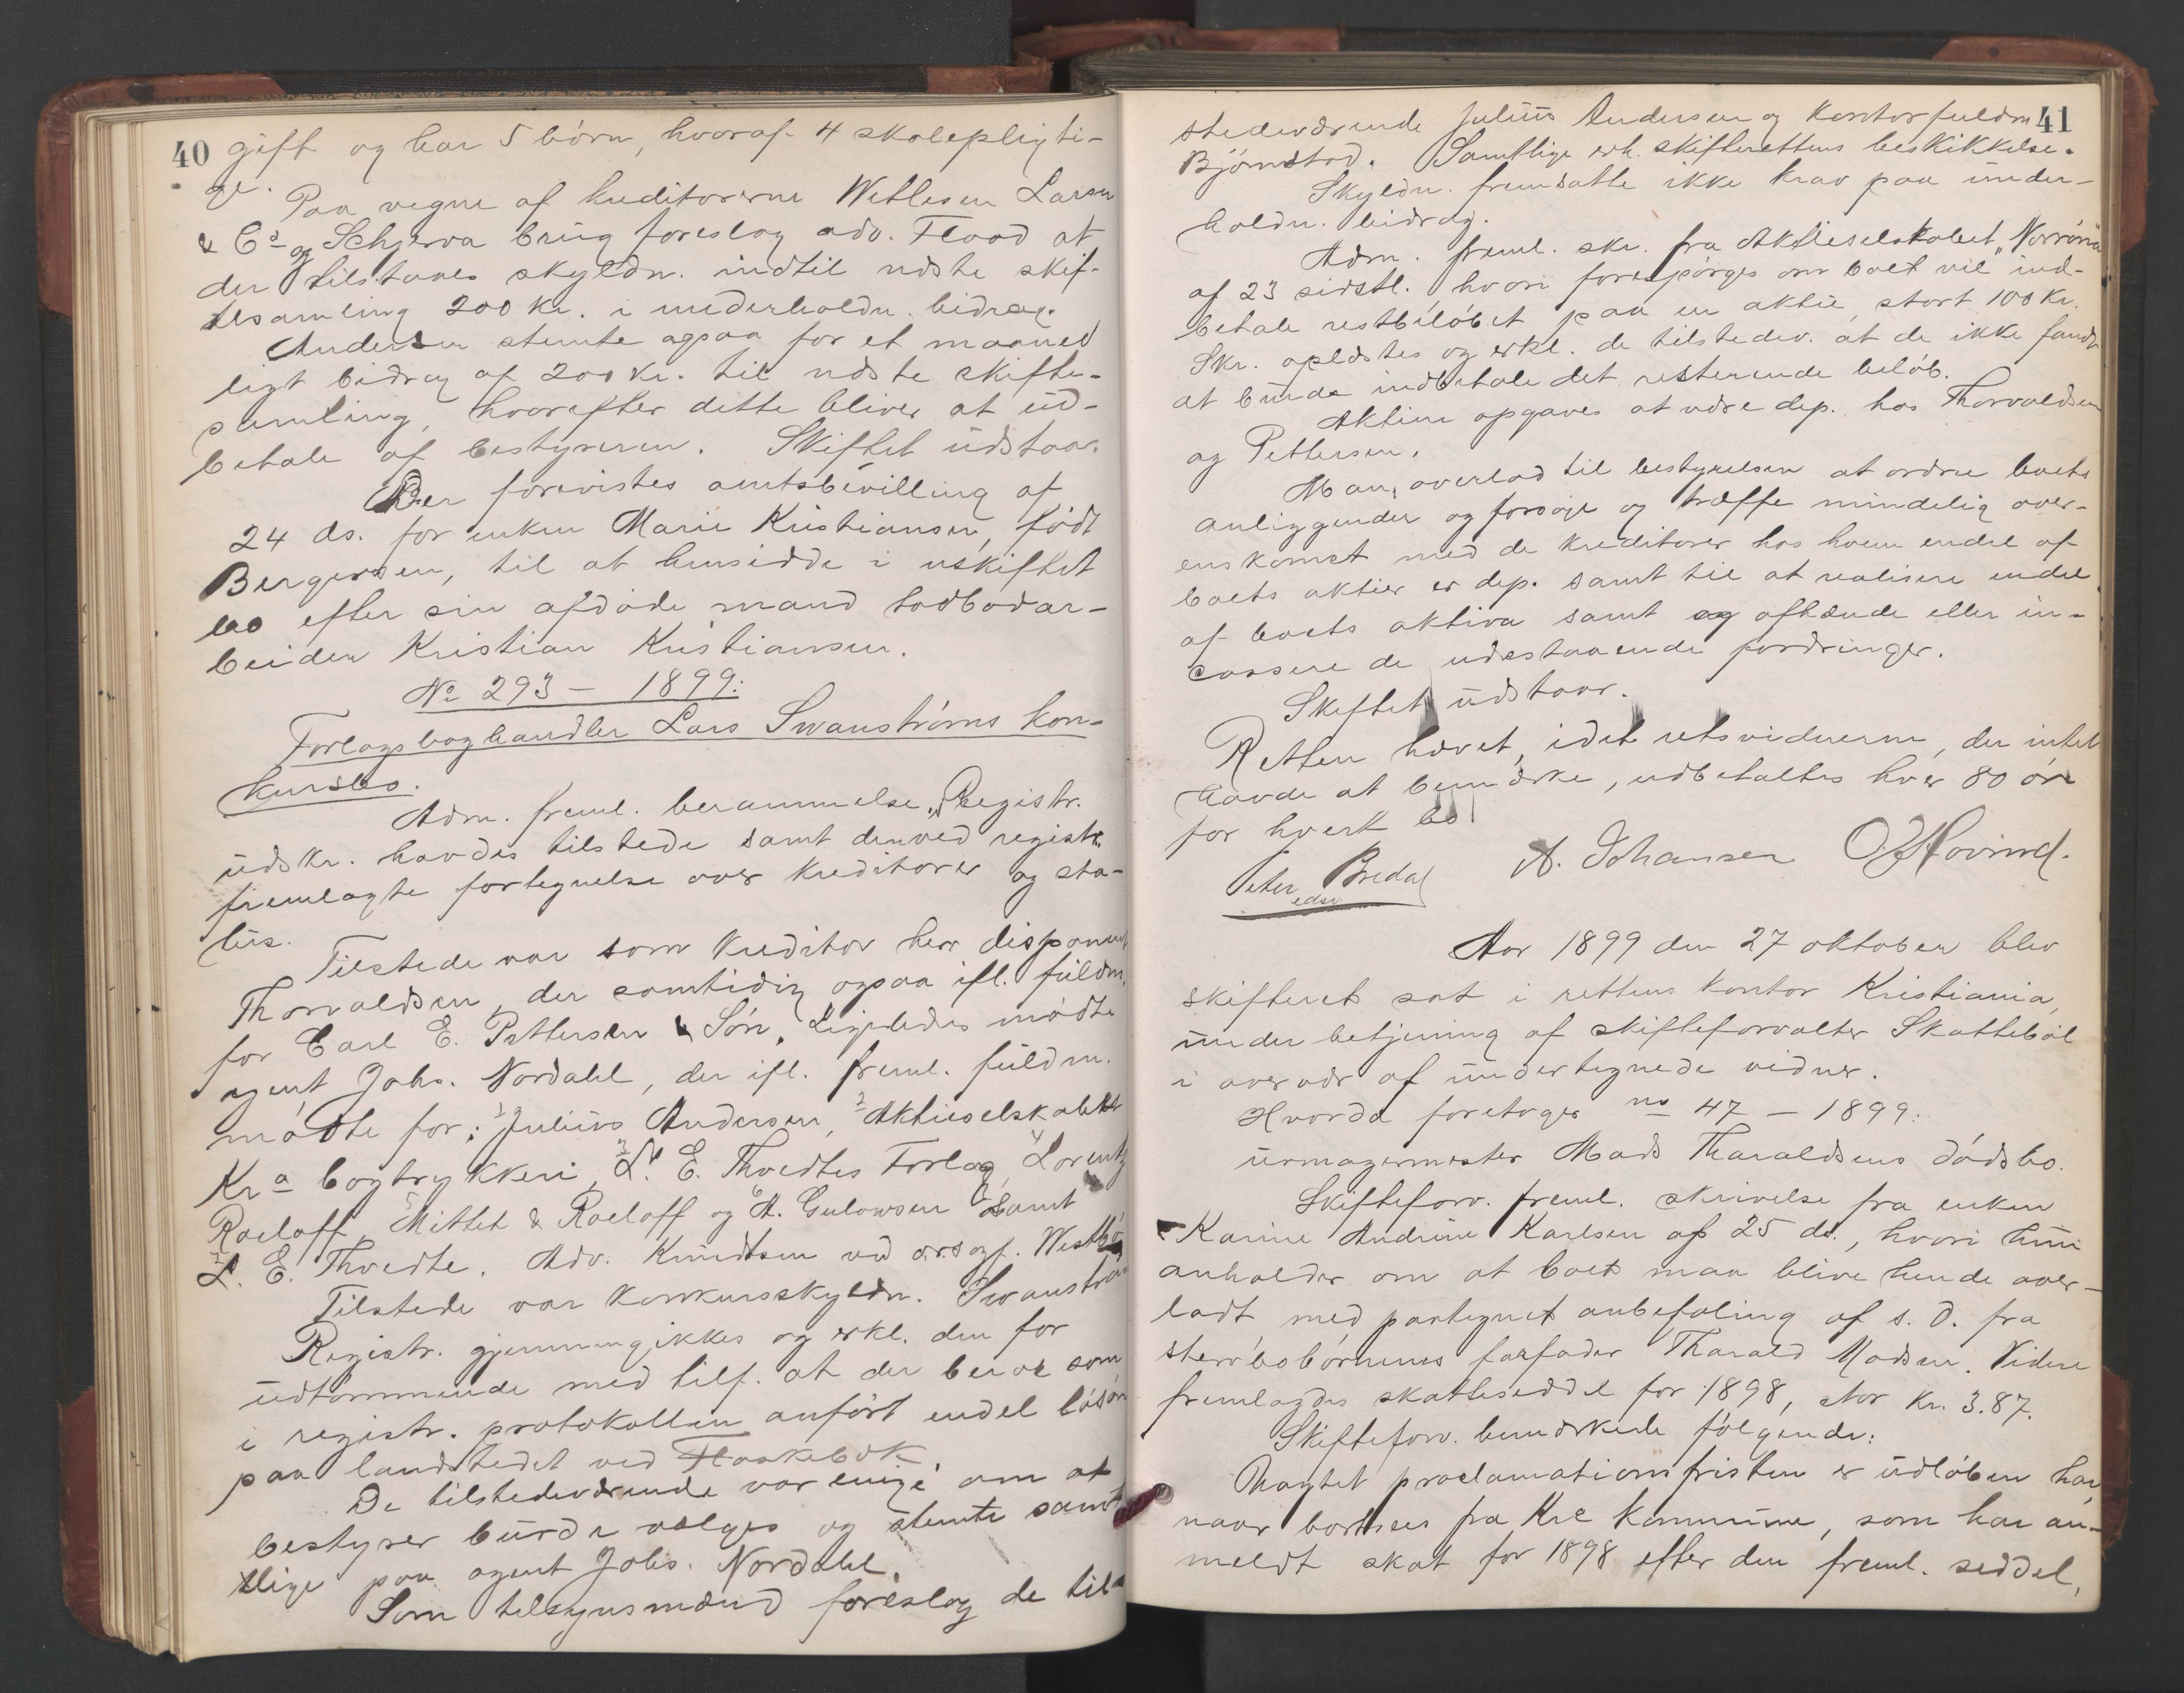 40
gift og har 5 börn, hvoraf 4 skolepligti-
ge.
Paa vegne af kreditorerne Wetlesen Larsen
& Co og Schjerva brug foreslog adv. Flood at
der tilstaaes skyldn. indtil næste skif-
tesamling 200 kr. i underholdn. bidrag.
Andersen stemte ogsaa for et maaned
ligt bidrag af 200 kr. til næste skifte-
samling, hvorefter dette bliver at ud-
betale af bestyreren. Skiftet udstaar.
Der forevistes amtsbevilling af
24 ds. for enken Marie Kristiansen, född
Bergersen, til at hensidde i uskiftet
bo efter sin afdöde mand todbodar-
beider Kristian Kristiansen.
No 293 - 1899:
Forlagsboghandler Lars Swanströms kon-
kursbo.
Adm. freml. berammelse. Registr.
udskr. havdes tilstede samt den ved registr.
fremlagte fortegnelse over kreditorer og sta-
tus.
Tilstede var som kreditor herr disponent
Thorvaldsen, der samtidig ogsaa ifl. fuldm.
for Carl E. Pettersen & Sön. Ligeledes mödte
agent Johs. Nordahl, der ifl. freml. fuldm.
mödte for: 1 Julius Andersen, 2 Aktieselskabet
Kra bogtrykkeri, 3 L. E. Thvedtes Forlag, 4 Lorentz
Roeloff, 5 Mittet & Roeloff og 6 A. Gulowsen samt
7 L. E. Thvedte. Adv. Knudtsen ved orsagf.
Tilstede var konkursskyldn. Swanström
Registr. gjennemgikkes og erkl. den for
udtömmende med tilf. at der beror som
i registr. protokollen anfört endel lösöre
paa landstedet ved Flaskebæk.
De tilstedeværende var enige om at
bestyrer burde vælges og stemte samt-
lige paa agent Johs. Nordahl.
Som tilsynsmænd foreslog de til-
41
stedeværende Julius Andersen og kontorfuldm.
Björnstad. Samtlige erh. skifterettens beskikkelse.
Skyldn. fremsatte ikke krav paa under-
holdn. bidrag.
Adm. freml. skr. fra Aktieselskabet "Norröna"
af 23 sidstl. hvori forespörges om boet vil ind-
betale restbelöbet paa en aktie, stort 100 kr.
Skr. oplæstes og erkl. de tilstedev. at de ikke fandt
at burde indbetale det resterende belöb.
Aktien opgaves at være dep. hos Thorvaldsen
og Pettersen.
Man overlod til bestyrelsen at ordne boets
anliggender og forsöge og træffe mindelig over-
enskomst med de kreditorer hos hvem endel af
boets aktier er dep. samt til at realisere endel
af boets aktiva samt og afhænde eller in-
cassere de udestaaende fordringer.
Skiftet udstaar.
Retten hævet, idet retsvidnerne, der intet
havde at bemærke, udbetaltes hver 80 öre
for hvert bo
Peter Bredal A. Johansen O. Hovind.
edsv
Aar 1899 den 27 oktober blev
skifteret sat i rettens kontor Kristiania,
under betjening af skifteforvalter Skatteböl
i overvær af undertegnede vidner.
Hvorda foretoges no 47 - 1899:
urmagermester Mads Tharaldsens dödsbo.
Skifteforv. freml. skrivelse fra enken
Karine Andrine Karlsen af 25 ds., hvori hun
anholder om at boet maa blive hende over-
ladt med paategnet anbefaling af s. D. fra
stervbobörnenes farfader Tharald Madsen. Videre
fremlagdes skatteseddel for 1898, stor kr. 3.87.
Skifteforv. bemærkede fölgende:
Uagtet proclamationsfristen er udlöben har,
naar bortsees fra Kra kommune, som har an-
meldt skat for 1898 efter den freml. seddel,